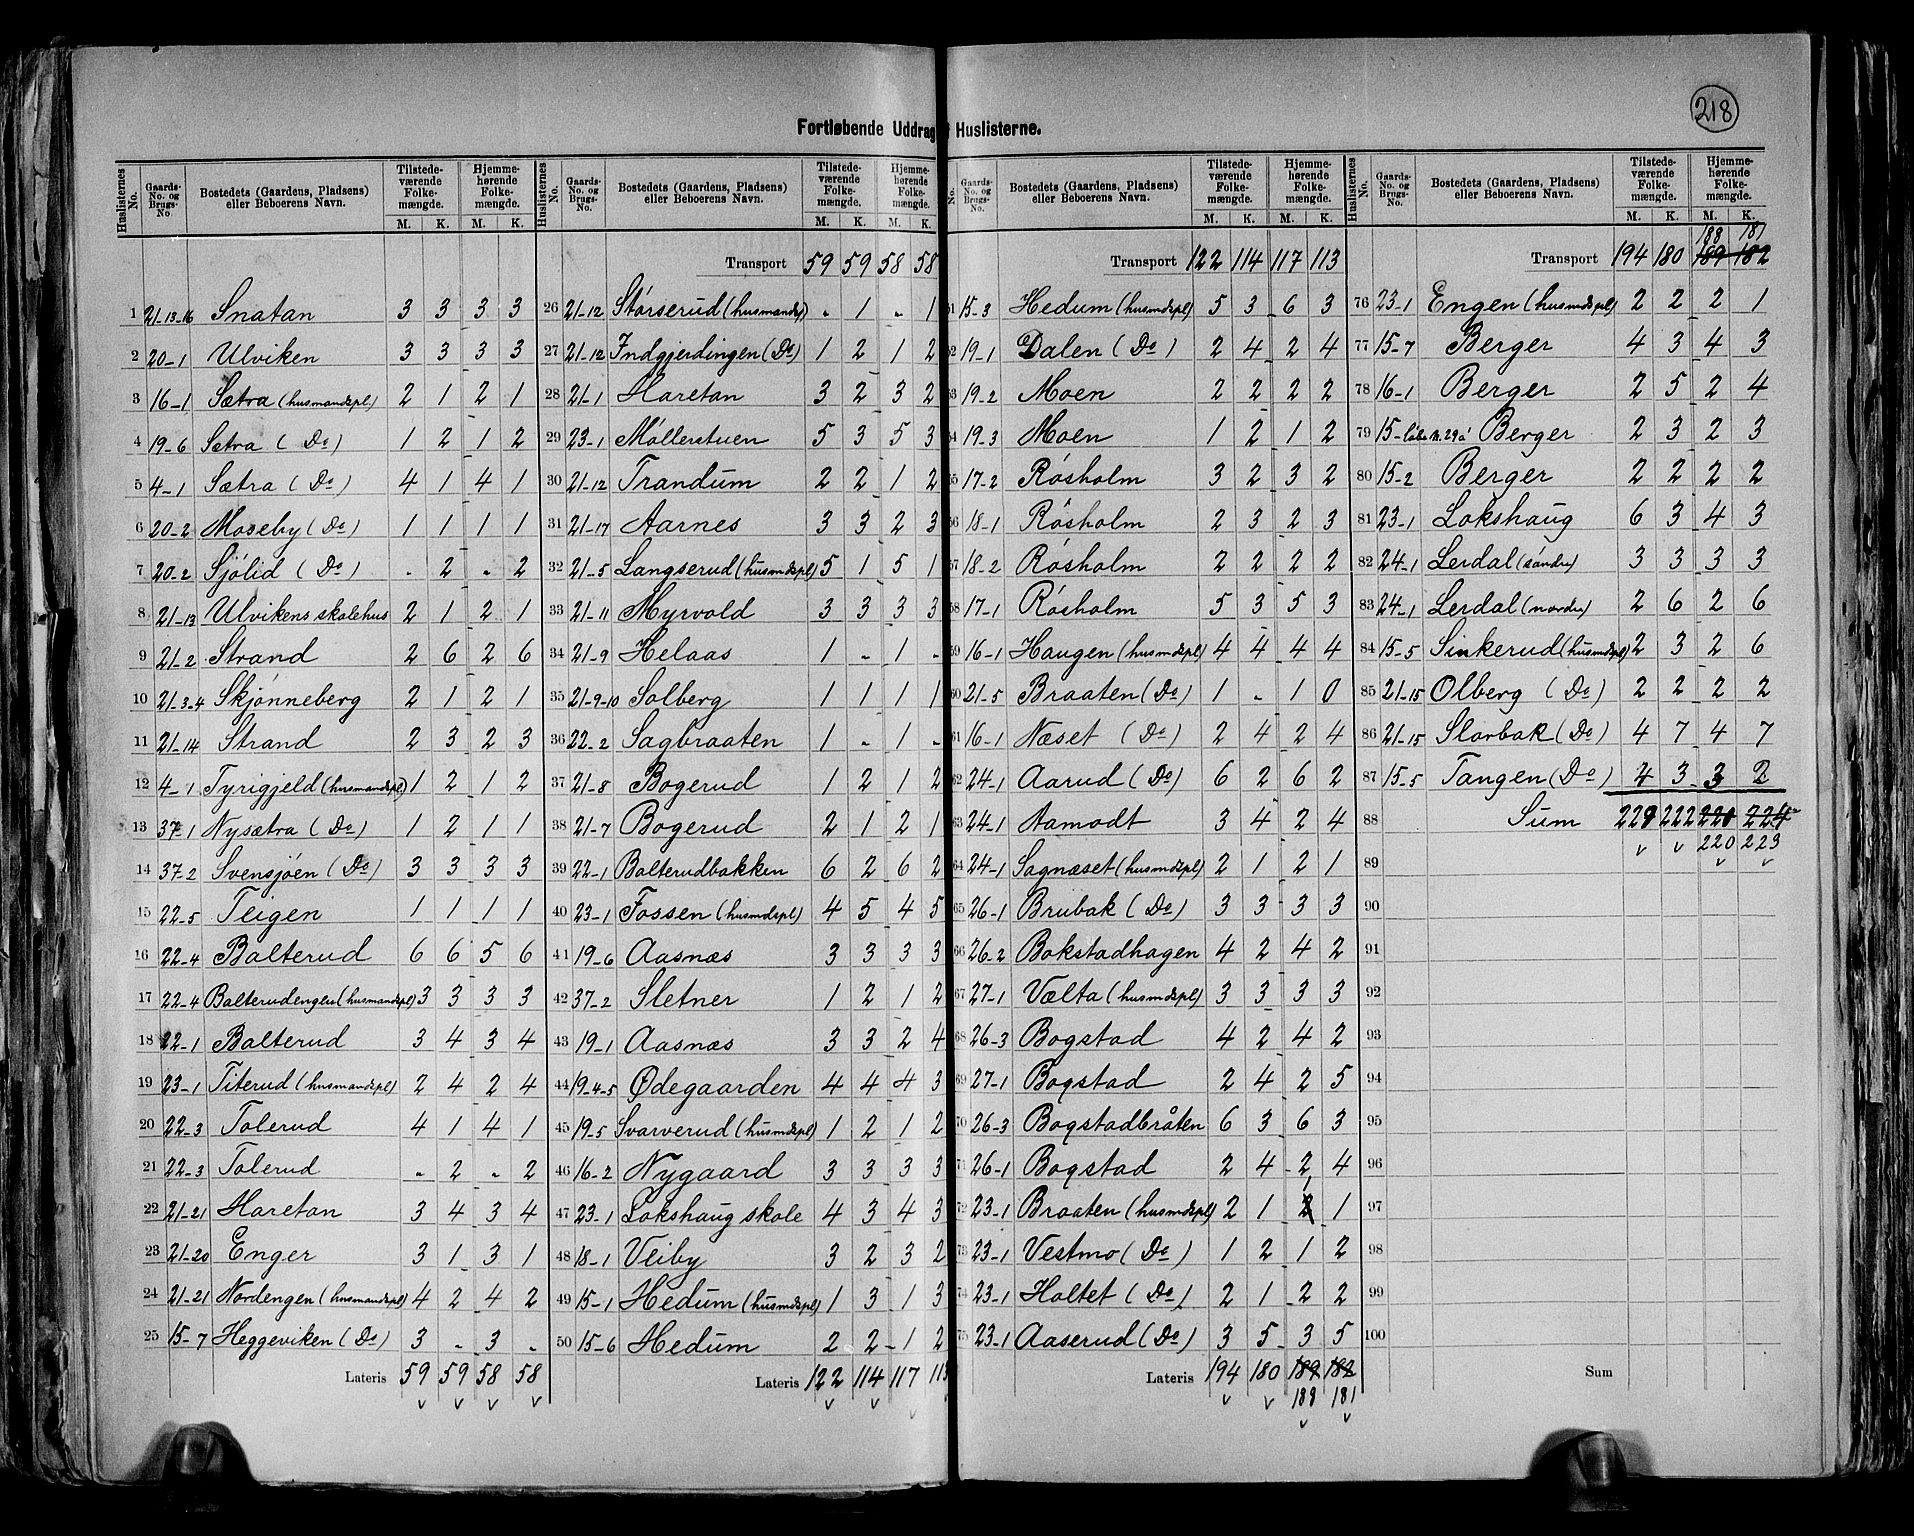 218
Fortløbende Uddrag Huslisterne.
Huslisternes No. Gaards-No. og Brugs-No. Bostedets (Gaardens, Pladsens) eller Beboerens Navn. Tilstedeværende Folkemængde. M. K. Hjemmehørende Folkemængde. M. K.
1 21-13-16 Snatan 3 3 3 3
2 20-1 Ulviken 3 3 3 3
3 16-1 Sætra (husmandspl) 2 1 2 1
4 19-6 Sætra (Do) 1 2 1 2
5 4-1 Sætra (Do) 4 1 4 1
6 20-2 Moseby (Do) 1 1 1 1
7 20-2 Sjölid (Do) - 2 - 2
8 21-13 Ulvikens skolehus 2 1 2 1
9 21-2 Strand 2 6 2 6
10 21-3-4 Skjønneberg 2 1 2 1
11 21-14 Strand 2 3 2 3
12 4-1 Tyrigjeld (husmandspl) 1 2 1 2
13 37-1 Nysætra (Do) 1 2 1 1
14 37-2 Svensjöen (Do) 3 3 3 3
15 22-5 Teigen 1 1 1 1
16 22-4 Balterud 6 6 5 6
17 22-4 Balterudengen (husmandspl) 3 3 3 3
18 22-1 Balterud 3 4 3 4
19 23-1 Titerud (husmandspl) 2 4 2 4
20 22-3 Tolerud 4 1 4 1
21 22-3 Tolerud - 2 - 2
22 21-21 Haretan 3 4 3 4
23 21-20 Enger 3 1 3 1
24 21-21 Nordengen (husmandspl) 4 2 4 2
25 15-7 Heggeviken (Do) 3 - 3 -
Lateris 59 59 58 58
Huslisternes No. Gaards-No. og Brugs-No. Bostedets (Gaardens, Pladsens) eller Beboerens Navn. Tilstedeværende Folkemængde. M. K. Hjemmehørende Folkemængde. M. K.
Transport 59 59 58 58
26 21-12 Störserud (husmandspl) - 1 - 1
27 21-12 Indgjerdingen (Do) 1 2 1 2
28 21-1 Haretan 3 2 3 2
29 23-1 Möllerstuen 5 3 5 3
30 21-12 Trandum 2 2 1 2
31 21-17 Aarnes 3 3 2 3
32 21-5 Langserud (husmdspl) 5 1 5 1
33 21-11 Myrvold 3 3 3 3
34 21-9 Helaas 1 - 1 -
35 21-9-10 Solberg 1 1 1 1
36 22-2 Sagbraaten 1 - 1 -
37 21-8 Bogerud 1 2 1 2
38 21-7 Bogerud 2 1 2 1
39 22-1 Balterudbakken 6 2 6 2
40 23-1 Fossen (husmdspl) 4 5 4 5
41 19-6 Aasnæs 3 3 3 3
42 37-2 Sletner 1 2 1 2
43 19-1 Aasnæs 3 3 2 4
44 19-4-5 Ødegaarden 4 4 4 3
45 19-5 Svarverud (husmdspl) 1 2 1 2
46 16-2 Nygaard 3 3 3 3
47 23-1 Lokshaug skole 4 3 4 3
48 18-1 Veiby 3 2 3 2
49 15-1 Hedum (husmdspl) 1 3 1 3
50 15-6 Hedum 2 2 1 2
Lateris 122 114 117 113
No. Gaards-No. og Brugs-No. Bostedets (Gaardens, Pladsens) eller Beboerens Navn. Tilstedeværende Folkemængde. M. K. Hjemmehørende Folkemængde. M. K.
Transport 122 114 117 113
51 15-3 Hedum (husmdspl) 5 3 6 3
52 19-1 Dalen (Do) 2 4 2 4
53 19-2 Moen 2 2 2 2
54 19-3 Moen 1 2 1 2
55 17-2 Rösholm 3 2 3 2
56 18-1 Rösholm 2 3 2 3
57 18-2 Rösholm 2 2 2 2
58 17-1 Rösholm 5 3 5 3
59 16-1 Haugen (husmdspl) 4 4 4 4
60 21-5 Braaten (Do) 1 - 1 0
61 16-1 Næset (Do) 2 4 2 4
62 24-1 Aarud (Do) 6 2 6 2
63 24-1 Aamodt 3 4 2 4
64 24-1 Sagnæset (husmdspl) 2 1 2 1
65 26-1 Brubak (Do) 3 3 3 3
66 26-2 Bakstadhagen 4 2 4 2
67 27-1 Vælta (husmdspl) 3 3 3 3
68 26-3 Bogstad 4 2 4 2
69 27-1 Bogstad 2 4 2 5
70 26-3 Bogstadbråten 6 3 6 3
71 26-1 Bogstad 2 4 2 4
72 23-1 Braaten (husmdspl) 2 1 2 1 1
73 23-1 Vestmo (Do) 1 2 1 2
74 23-1 Holtet (Do) 2 1 2 2
75 23-1 Aaserud (Do) 3 5 3 5
Lateris 194 180 189 182
188 181
Huslisternes No. Gaards-No. og Brugs-No. Bostedets (Gaardens, Pladsens) eller Beboerens Navn. Tilstedeværende Folkemængde. M. K. Hjemmehørende Folkemængde. M. K.
188 181
Transport 194 180 189 182
76 23-1 Engen (husmdspl) 2 2 2 1
77 15-7 Berger 4 3 4 3
78 16-1 Berger 2 5 2 4
79 15- Berger 2 3 2 3
80 15-2 Berger 2 2 2 2
81 23-1 Lokshaug 6 3 4 3
82 24-1 Lerdal (söndre) 3 3 3 3
83 24-1 Lerdal (nordre) 2 6 2 6
84 15-5 Sinkerud (husmdspl) 2 3 2 6
85 21-15 Olberg (Do) 2 2 2 2
86 21-15 Slorbak (Do) 4 7 4 7
87 15-5 Tangen (Do) 4 3 3 2
88 Sum 229 222
220 223
89
90
91
92
93
94
95
96
97
98
99
100
Sum